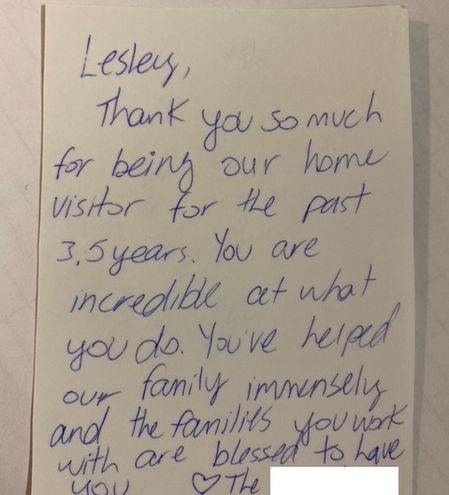 Lesley,
Thank you so much
for being our home
visitor for the past
3.5 years. You are
incredible at what
you do. You've helped
our family immensely
and the families you work
with are blessed to have
you ♡ The